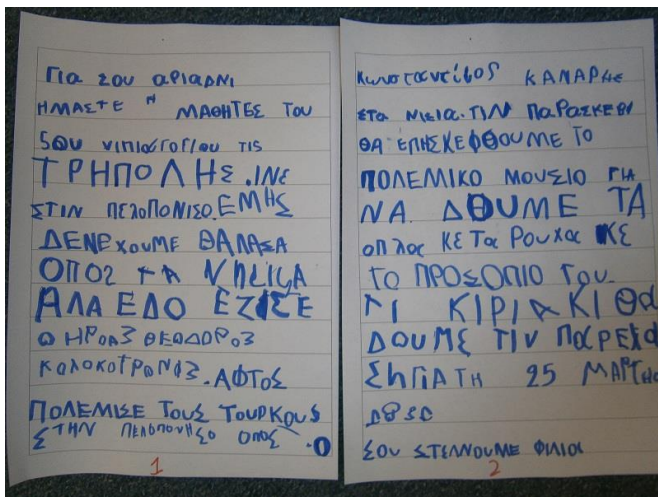 Για ΣΟΥ αριαδνι
ΗΜΑΣΤΕ Η ΜΑΘΗΤΕΣ ΤΟΥ
5ΟΥ νιπιαγογιου τις
ΤΡΗΠΟΛΗΣ.ΙΝΕ
ΣΤΙΝ ΠΕΛΟΠΟΝΙΣΟ.ΕΜΗΣ
ΔΕΝΕΧουΜΕ ΘΑΛΑΣΑ
ΟΠΟΣ ΤΑ ΝΗΣΙΑ
ΑΛΑ ΕΔΟ ΕΖΙΣΕ
Ο ΗΡΟΑΣ ΘΕΟΔΟΡΟΣ
ΚΟΛΟΚΟΤΡΟΝΙΣ.ΑΦΤΟΣ
ΠΟΛΕΜΙΣΕ ΤΟυΣ ΤΟΥΡΚΟΥΣ
ΣΤΗΝ ΠΕΛΟΠΟΝΗΣΟ ΟΠΟΣ.Ο
1
Κωνσταντίνος ΚΑΝΑΡΗΣ
ΣΤΑ ΝΙΣΙΑ.ΤΙΝ ΠΑΡΑΣΚΕΒΙ
ΘΑ ΕΠΗΣΚΕΦΘΟΥΜΕ ΤΟ
ΠΟΛΕΜΙΚΟ ΜΟΥΣΙΟ ΓΙΑ
ΝΑ ΔΟΥΜΕ ΤΑ
οπλα ΚΕ Τα Ρουχα ΚΕ
ΤΟ ΠΡΟΣΟΠΙΟ ΤΟυ.
ΤΙ ΚΙΡΙΑΚΙ Θα
ΔΟΥΜΕ ΤΙΝ ΠαΡΕΛα
ΣΗ ΓΙΑ ΤΗ 25 ΜΑΡΤΗΟ
ΣΟΥ ΣΤΕΛΝΟΥΜΕ ΦΙΛΙα
2